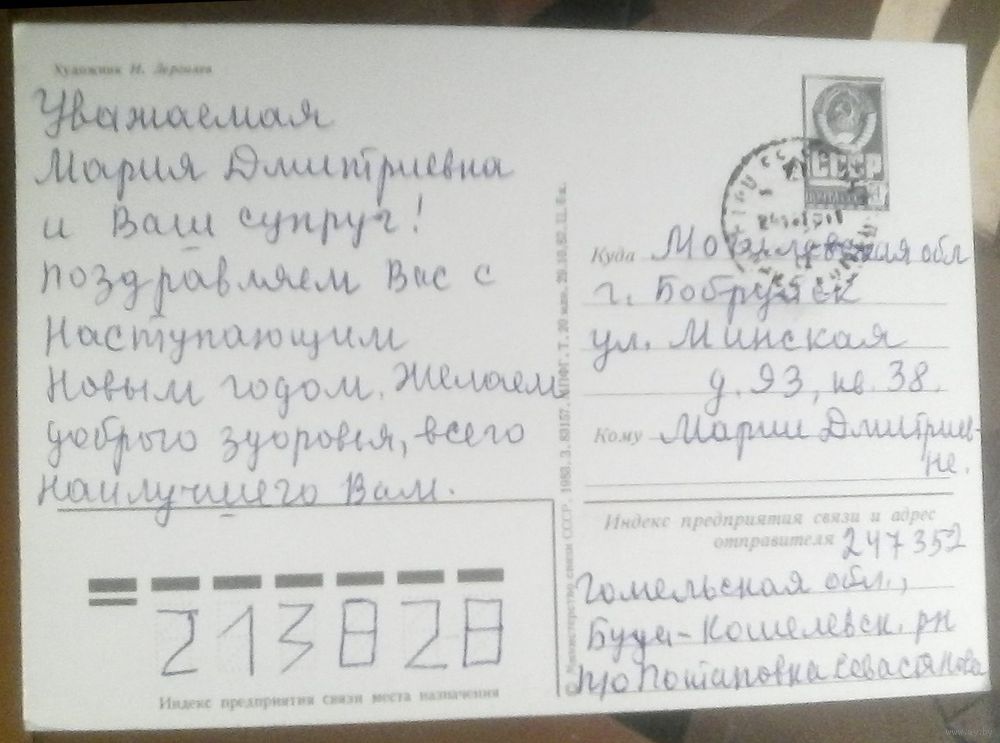 Художник И. Дергилев
Уважаемая
Мария Дмитриевна
и Ваш супруг!
поздравляем Вас с
Наступающим
Новым годом. Желаем
доброго здоровья, всего
наилучшего Вам.
213828
Индекс предприятия связи места назначения
© Министерство связи СССР. 1983. З. 83157. МПФГ. Т. 20 млн. 29.10.82. Ц. 6 к.
СССР
Куда Могилевская обл
г. Бобруйск
ул. Минская
д. 93, кв. 38.
Кому Марии Дмитриев-
не.
Индекс предприятия связи и адрес
отправителя 247352
Гомельская обл.,
Буда-Кошелевск. рн
п/о Потаповка Севастянова
www.ay.by